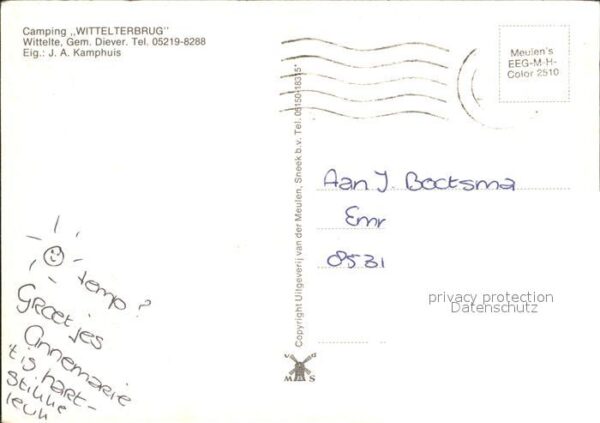 Camping „WITTELTERBRUG"
Wittelte, Gem. Diever. Tel. 05219-8288
Eig.: J. A. Kamphuis
Meulen's
EEG-M-H-
Color 2510
Copyright Uitgeverij van der Meulen, Sneek b.v. Tel. 05150-18315*
Aan J. Bootsma
Emr
8531
temp?
Groetjes
Annemarie
't is hart-
stikke
leuk
privacy protection
Datenschutz
v d
M S